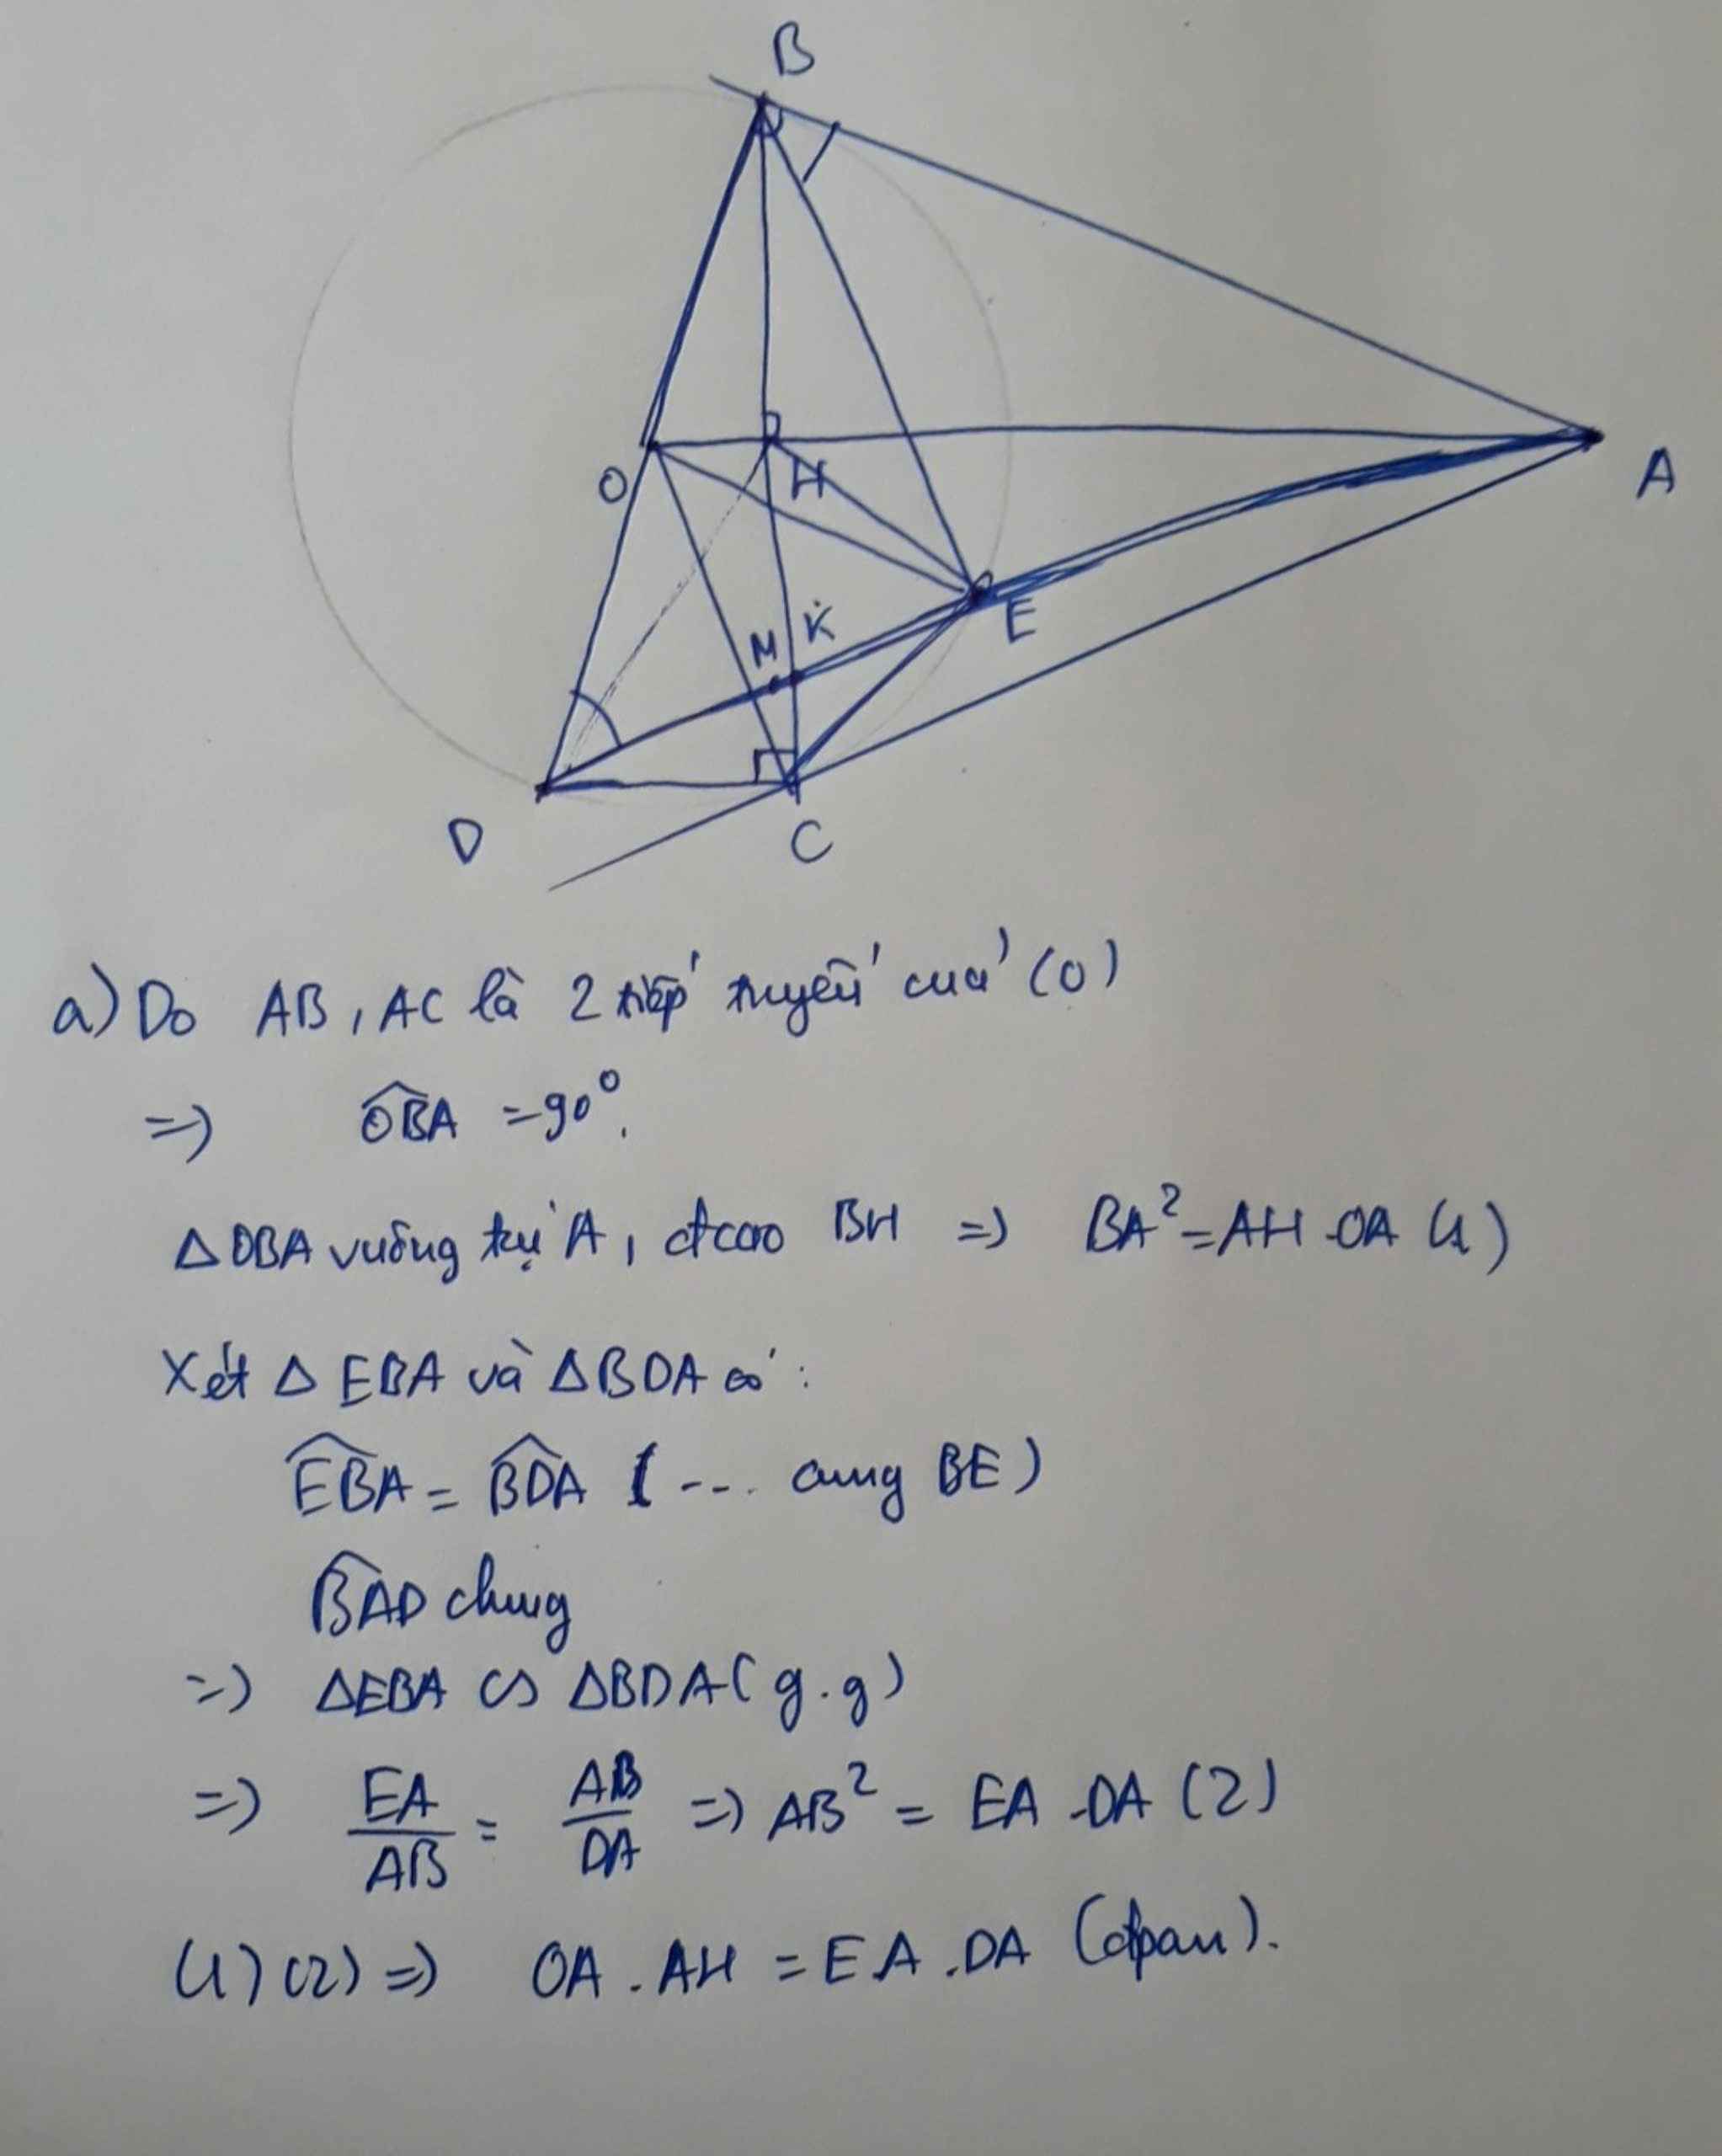 B
O
H
A
M
K
E
D
C
a) Do AB, AC là 2 tiếp tuyến của (O)
=> OBA = 90°.
Δ OBA vuông tại A, đ cao BH => BA² = AH . OA (1)
Xét Δ EBA và Δ BDA có:
EBA = BDA ( ... cung BE)
BAD chung
=> ΔEBA ∽ ΔBDA (g.g)
=> EA/AB = AB/DA => AB² = EA . DA (2)
(1) (2) => OA . AH = EA . DA (đpcm).